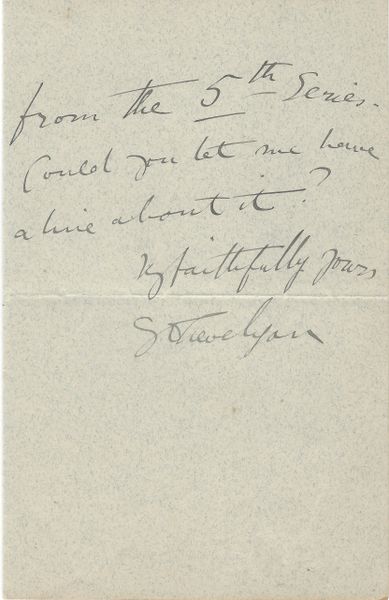 from the 5th Series.
Could you let me have
a line about it?
Vy faithfully yours
G Trevelyan